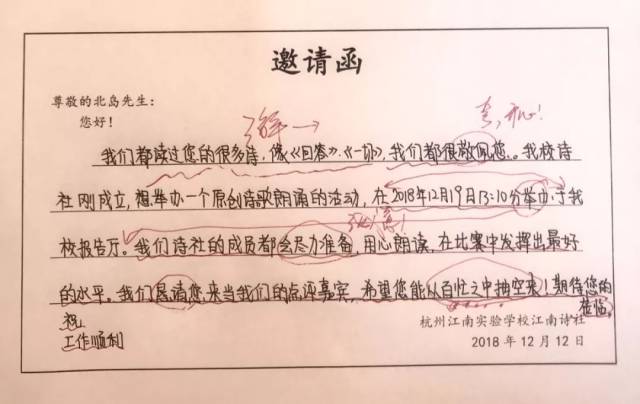 邀请函
尊敬的北岛先生：
您好！
我们都读过您的很多诗，像《回答》、《一切》，我们都很敬佩您。我校诗
社刚成立，想举办一个原创诗歌朗诵的活动，在2018年12月19日13:10分举办于我
校报告厅。我们诗社的成员都会尽力准备，用心朗读，在比赛中发挥出最好
的水平。我们恳请您来当我们的点评嘉宾，希望您能从百忙之中抽空来！期待您的
莅临。
祝
工作顺利
杭州江南实验学校江南诗社
2018年12月12日